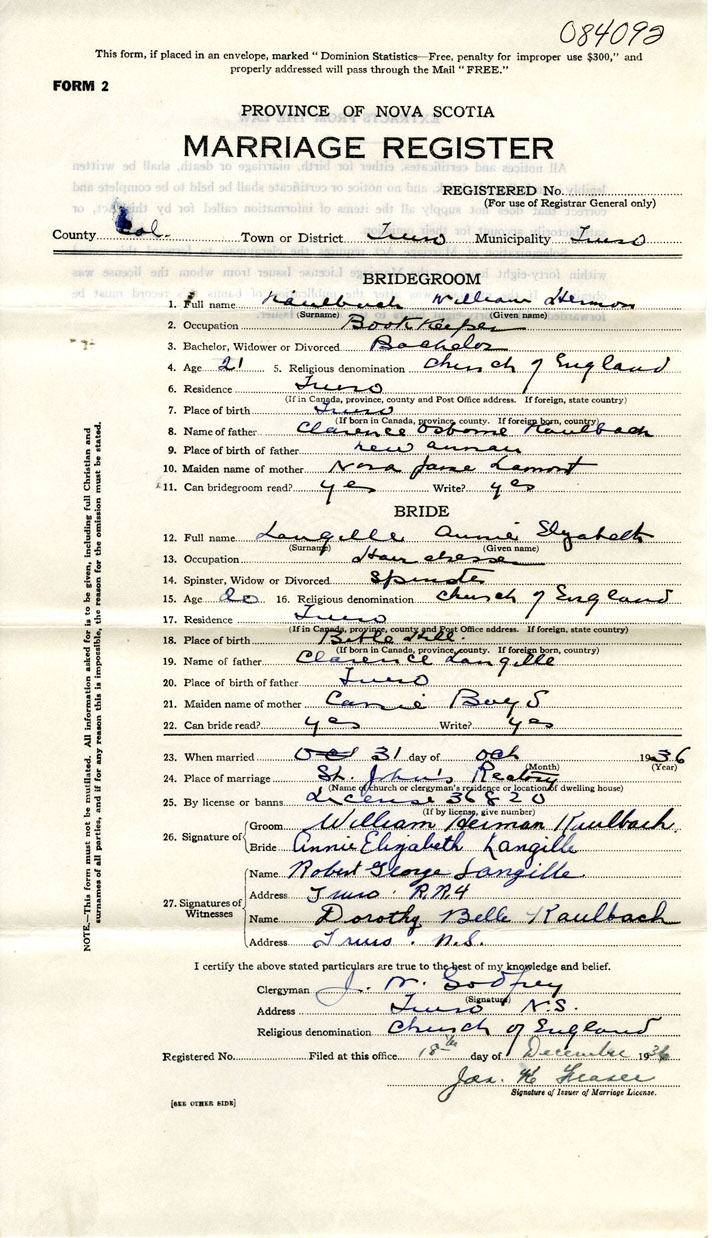 084092
This form, if placed in an envelope, marked "Dominion Statistics—Free, penalty for improper use $300," and
properly addressed will pass through the Mail "FREE."
FORM 2
PROVINCE OF NOVA SCOTIA
MARRIAGE REGISTER
REGISTERED No.
(For use of Registrar General only)
County Col. Town or District Truro Municipality Truro
BRIDEGROOM
1. Full name Kaulbach William Hermon
(Surname) (Given name)
2. Occupation Book Keeper
3. Bachelor, Widower or Divorced Bachelor
4. Age 21 5. Religious denomination Church of England
6. Residence Truro
(If in Canada, province, county and Post Office address. If foreign, state country)
7. Place of birth Truro
(If born in Canada, province, county. If foreign born, country)
8. Name of father Clarence Osborne Kaulbach
9. Place of birth of father New Annan
10. Maiden name of mother Nora Jane Lamont
11. Can bridegroom read? yes Write? yes
BRIDE
12. Full name Langille Annie Elizabeth
(Surname) (Given name)
13. Occupation Hair dresser
14. Spinster, Widow or Divorced Spinster
15. Age 20 16. Religious denomination Church of England
17. Residence Truro
(If in Canada, province, county and Post Office address. If foreign, state country)
18. Place of birth Bible Hill
(If born in Canada, province, county. If foreign born, country)
19. Name of father Clarence Langille
20. Place of birth of father Truro
21. Maiden name of mother Carrie
22. Can bride read? yes Write? yes
23. When married Oct 31 day of Oct 1936
(Month) (Year)
24. Place of marriage St. John's Rectory
(Name of church or clergyman's residence or location of dwelling house)
25. By license or banns License 36820
(If by license, give number)
26. Signature of Groom William Herman Kaulbach
Bride Annie Elizabeth Langille
27. Signatures of Witnesses Name Robert George Langille
Address Truro R.R.4
Name Dorothy Belle Kaulbach
Address Truro. N.S.
I certify the above stated particulars are true to the best of my knowledge and belief.
Clergyman J. W. Godfrey
(Signature)
Address Truro N.S.
Religious denomination Church of England
Registered No. Filed at this office 18th day of December 1936
Jas. K Fraser
Signature of Issuer of Marriage License.
[SEE OTHER SIDE]
NOTE.—This form must not be mutilated. All information asked for is to be given, including full Christian and
surnames of all parties, and if for any reason this is impossible, the reason for the omission must be stated.